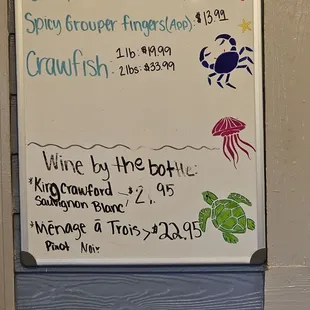 Spicy Grouper fingers (App): $13.99
Crawfish: 1lb: $19.99
2lbs: $33.99
Wine by the bottle:
*King crawford
Sauvignon Blanc
*Ménage à Trois > $22.95
Pinot Noir